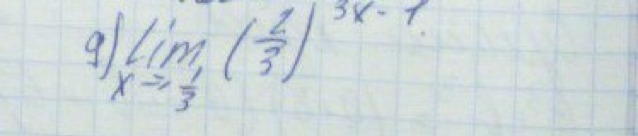 9) lim x→1/3 (2/3)^{3x-1}